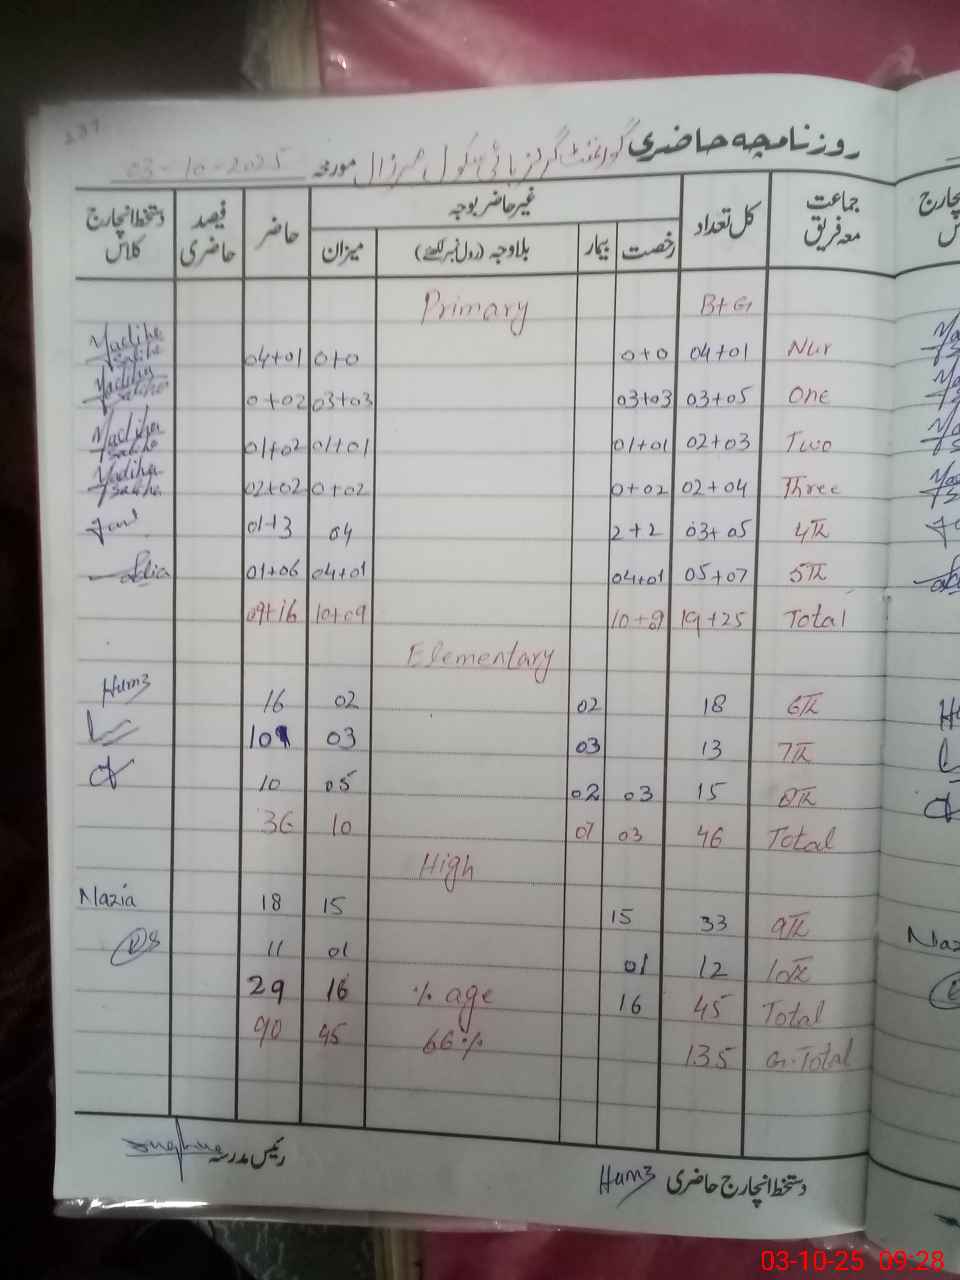 روزنامچہ حاضری گورنمنٹ گرلز ہائی سکول مورخہ 03-10-2025
جماعت معہ فریق کل تعداد غیر حاضر بوجہ حاضر فیصد حاضری دستخط انچارج کلاس
رخصت بیمار بلاوجہ (رول نمبر لکھئے) میزان
B+G Primary
Nur 04+01 0+0 0+0 04+01 Madiha
One 03+05 03+03 03+03 0+02 Madiha
Two 02+03 01+01 01+01 01+02 Madiha
Three 02+04 0+02 0+02 02+02 Madiha
4th 03+05 2+2 04 01+3
5th 05+07 04+01 04+01 01+06
Total 19+25 10+9 10+09 09+16
Elementary
6th 18 02 02 16 Hum3
7th 13 03 03 10
8th 15 03 02 05 10
Total 46 03 07 10 36
High
9th 33 15 15 18 Nazia
10th 12 01 01 11
Total 45 16 % age 16 29
G.Total 135 66% 45 90
دستخط انچارج حاضری Hum3 رئیس مدرسہ
03-10-25 09:28